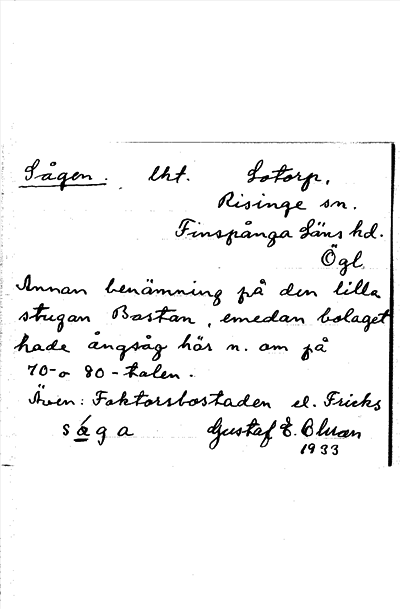 Sågen. lht. Lotorp,
Risinge sn.
Finspånga Läns hd.
Ögl.
Annan benämning på den lilla
stugan Bastan, emedan bolaget
hade ångsåg här n. om på
70-o 80-talen.
Även: Faktorsbostaden el. Fricks
såga Gustaf E.
1933